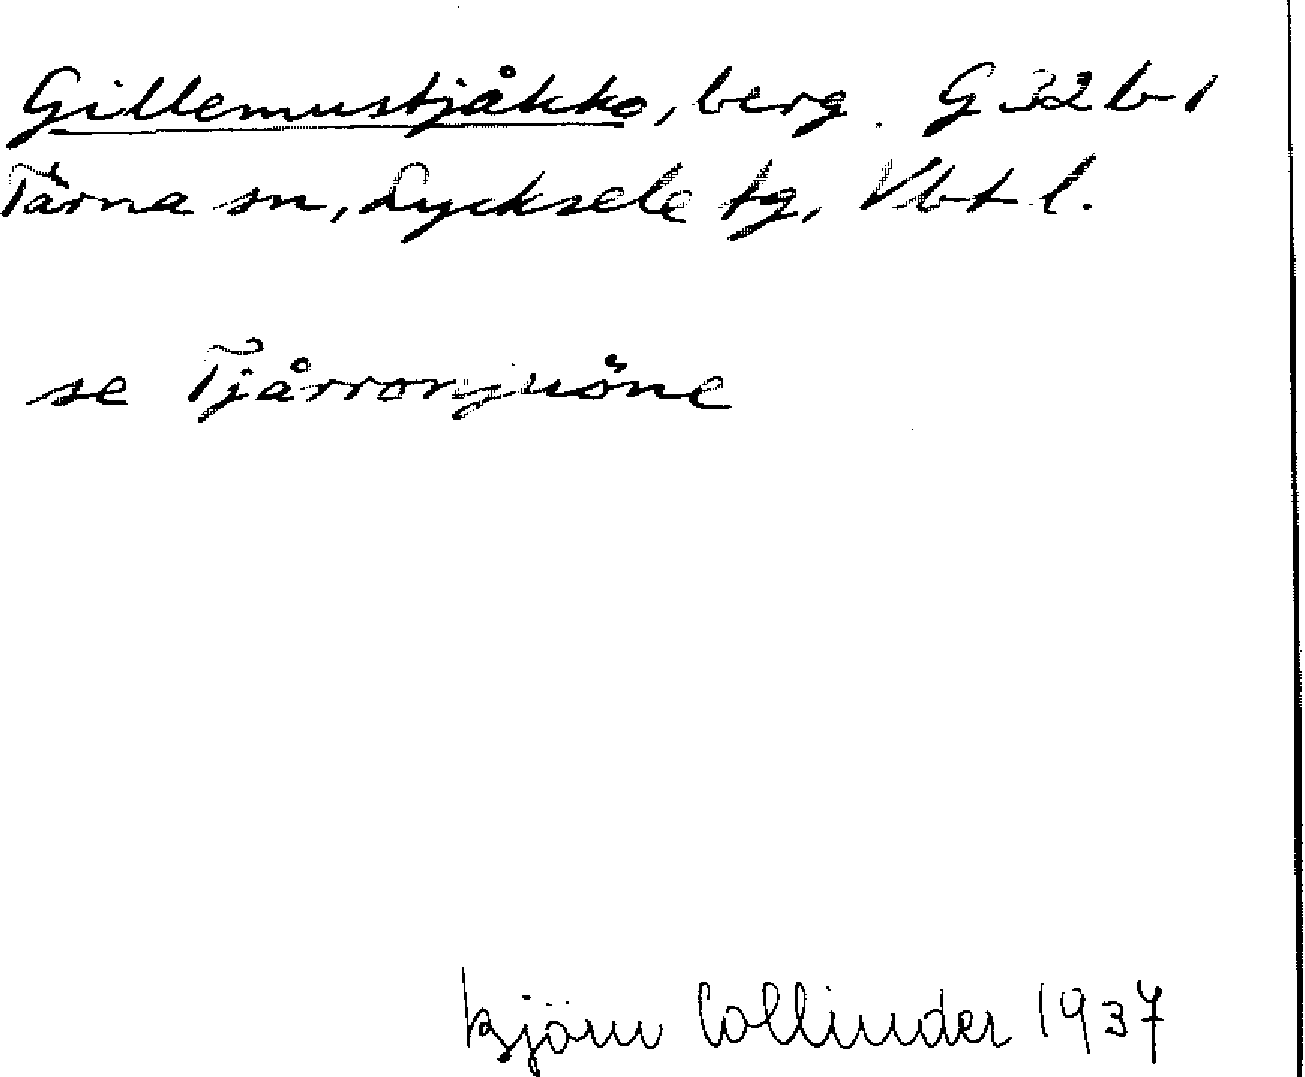 Gillemustjåkko, berg. G 32 b 1
Tärna sn, Lycksele tg, Vbt l.
se Tjårronjuöne
Björn Collinder 1937